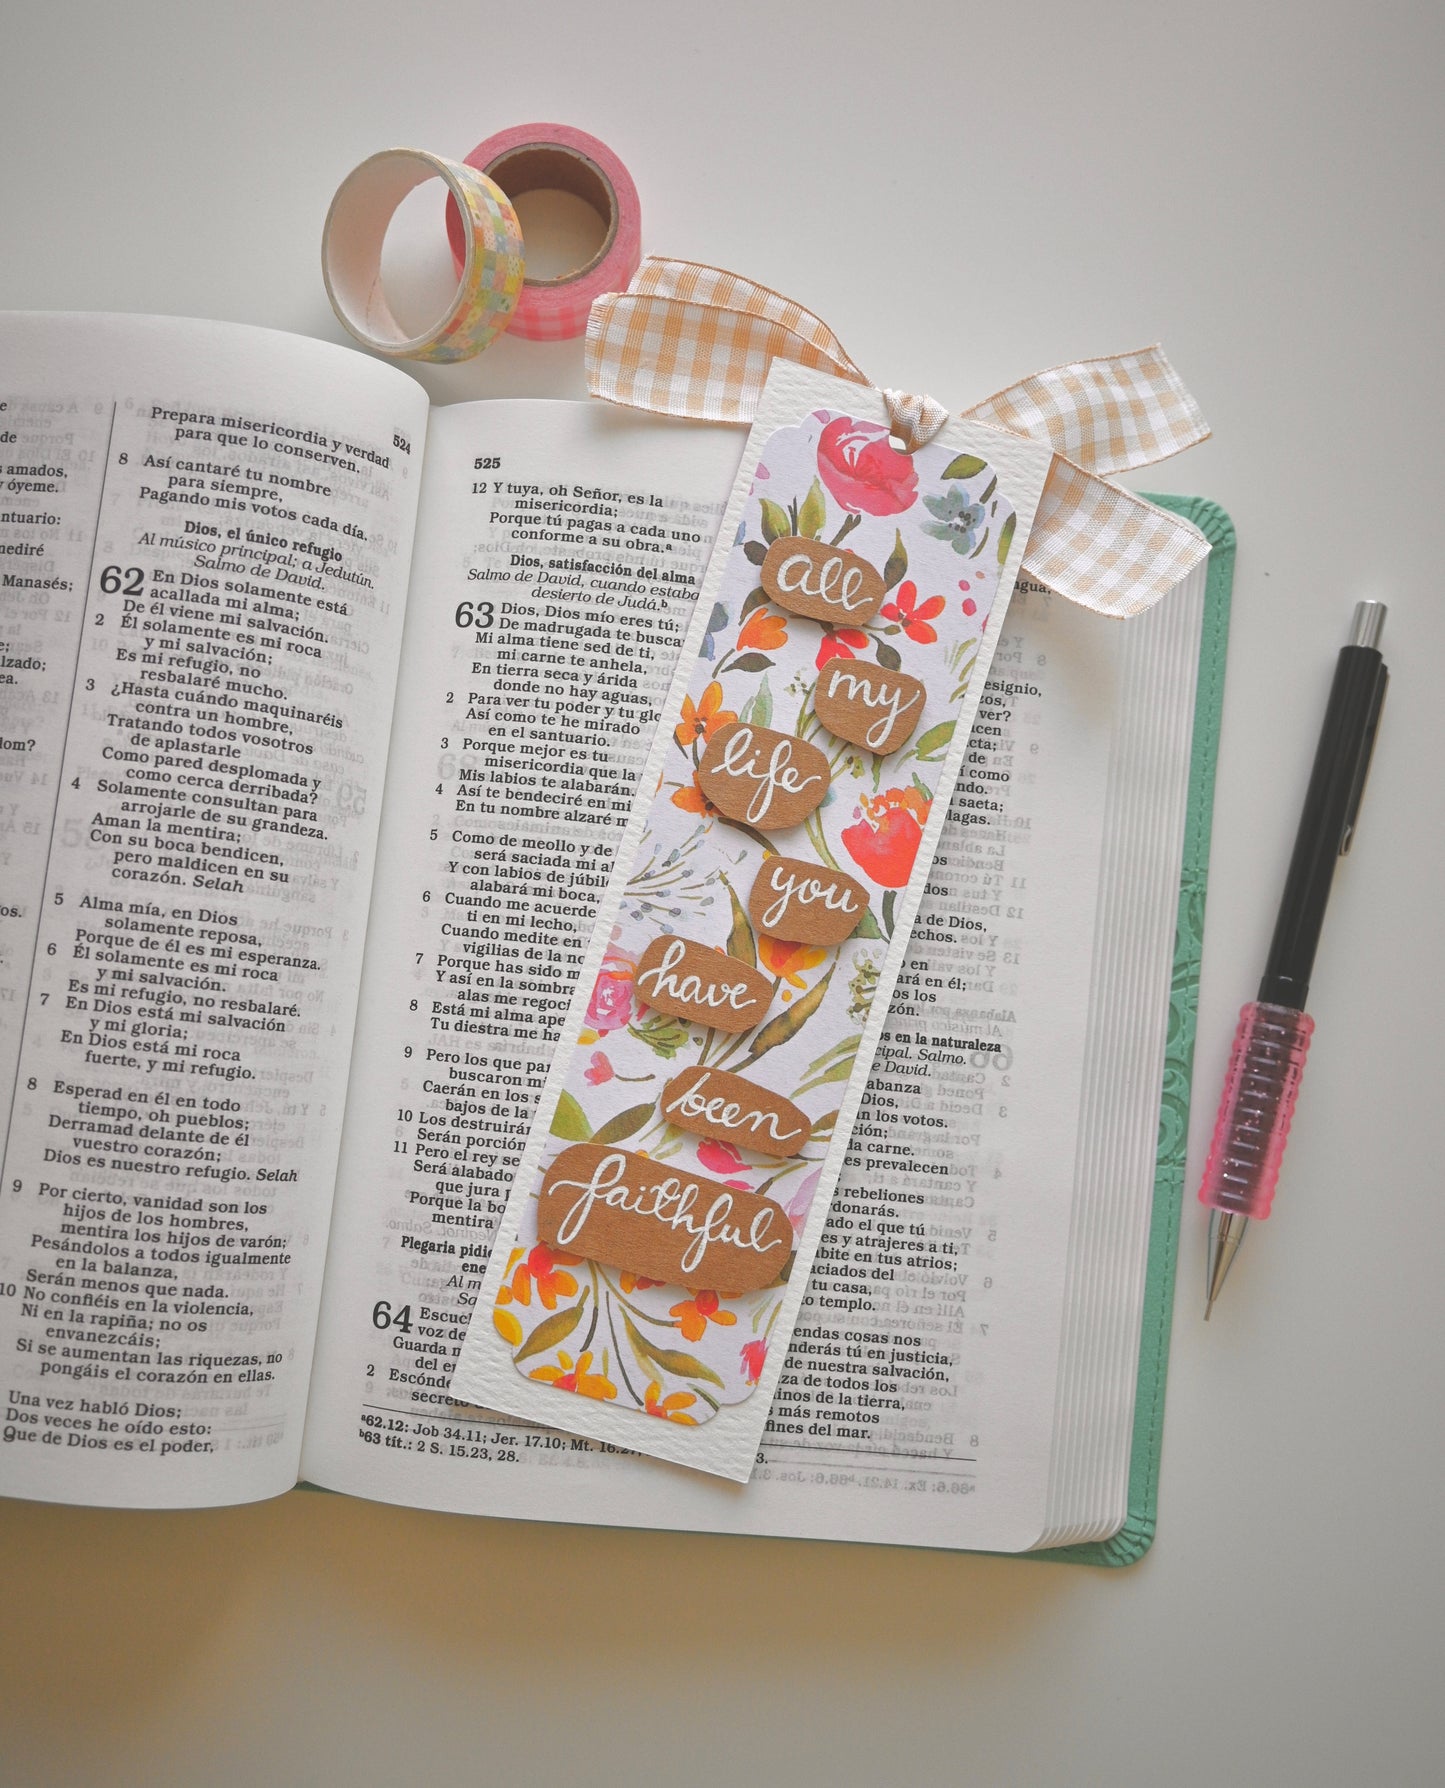 amados,
y óyeme.
Manasés;
524
Prepara misericordia y verdad
para que lo conserven.
8 Así cantaré tu nombre
para siempre,
Pagando mis votos cada día.
Dios, el único refugio
Al músico principal; a Jedutún.
Salmo de David.
62 En Dios solamente está
acallada mi alma;
De él viene mi salvación.
2 Él solamente es mi roca
y mi salvación;
Es mi refugio, no
resbalaré mucho.
3 ¿Hasta cuándo maquinaréis
contra un hombre,
Tratando todos vosotros
de aplastarle
Como pared desplomada y
como cerca derribada?
4 Solamente consultan para
arrojarle de su grandeza.
Aman la mentira;
Con su boca bendicen,
pero maldicen en su
corazón. Selah
5 Alma mía, en Dios
solamente reposa,
Porque de él es mi esperanza.
6 Él solamente es mi roca
y mi salvación.
Es mi refugio, no resbalaré.
7 En Dios está mi salvación
y mi gloria;
En Dios está mi roca
fuerte, y mi refugio.
8 Esperad en él en todo
tiempo, oh pueblos;
Derramad delante de él
vuestro corazón;
Dios es nuestro refugio. Selah
9 Por cierto, vanidad son los
hijos de los hombres,
mentira los hijos de varón;
Pesándolos a todos igualmente
en la balanza,
Serán menos que nada.
10 No confiéis en la violencia,
Ni en la rapiña; no os
envanezcáis;
Si se aumentan las riquezas, no
pongáis el corazón en ellas.
Una vez habló Dios;
Dos veces he oído esto:
Que de Dios es el poder,
525
12 Y tuya, oh Señor, es la
misericordia;
Porque tú pagas a cada uno
conforme a su obra.ª
Dios, satisfacción del alma
Salmo de David, cuando estaba
desierto de Judá.ᵇ
63 Dios, Dios mío eres tú;
De madrugada te busca
Mi alma tiene sed de ti,
mi carne te anhela,
En tierra seca y árida
donde no hay aguas,
2 Para ver tu poder y tu glo
Así como te he mirado
en el santuario.
3 Porque mejor es tu
misericordia que la
Mis labios te alabarán.
4 Así te bendeciré en mi
En tu nombre alzaré m
5 Como de meollo y de
será saciada mi al
Y con labios de júbilo
alabará mi boca,
6 Cuando me acuerde
ti en mi lecho,
Cuando medite en
vigilias de la no
7 Porque has sido m
Y así en la sombra
alas me regoci
8 Está mi alma ape
Tu diestra me ha
9 Pero los que par
buscaron mi
Caerán en los s
bajos de la
10 Los destruirán
Serán porción
11 Pero el rey se
Será alabado
que jura p
Porque la bo
mentira
Plegaria pidie
ene
Al m
Sa
64 Escuc
voz de
Guarda m
del en
2 Escónde
secreto
ª62.12: Job 34.11; Jer. 17.10; Mt. 16.27;
ᵇ63 tít.: 2 S. 15.23, 28.
all
my
life
you
have
been
faithful
esignio,
ver?
de
í como
saeta;
lagas.
a de Dios,
echos.
en
ará en él;
os los
zón.
s en la naturaleza
cipal. Salmo.
e David.
abanza
Dios,
n los votos.
ción;
la carne.
es prevalecen
rebeliones
donarás.
ado el que tú
es y atrajeres a ti,
abite en tus atrios;
aciados del
tu casa,
o templo.
endas cosas nos
nderás tú en justicia,
de nuestra salvación,
za de todos los
inos de la tierra,
más remotos
fines del mar.
3.